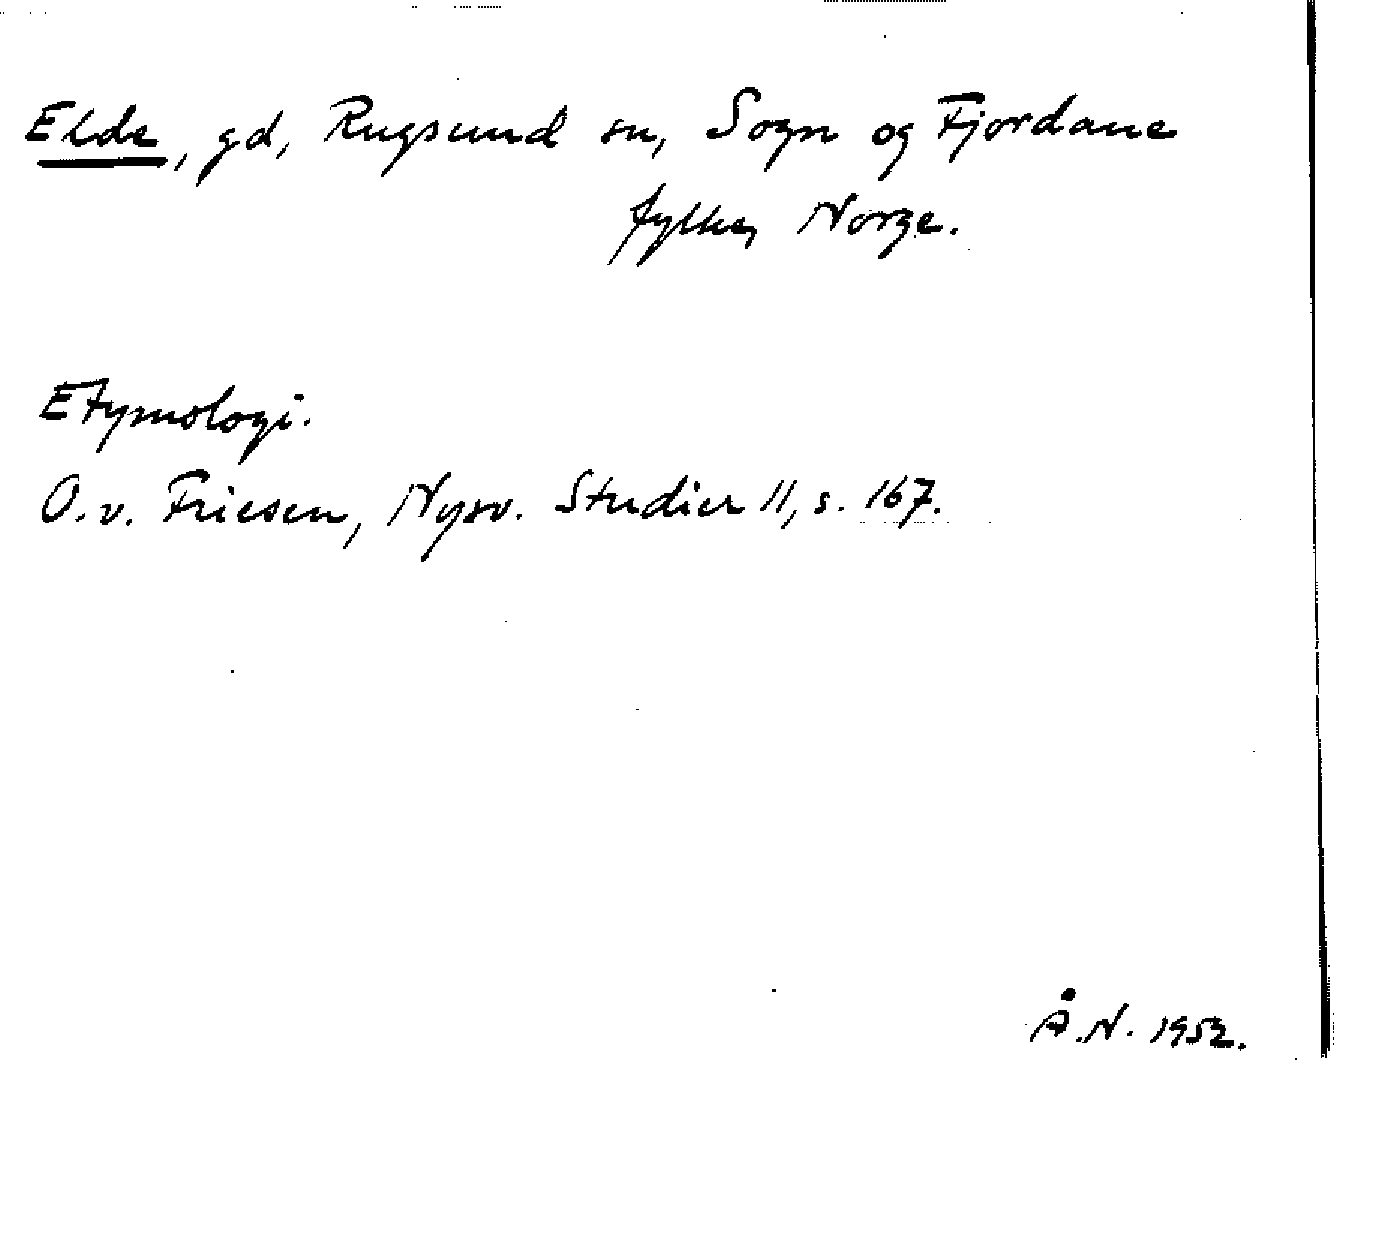 Elde, gd, Rugsund sn, Sogn og Fjordane
fylke, Norge.
Etymologi.
O. v. Friesen, Nysv. Studier 11, s. 167.
Å. N. 1952.